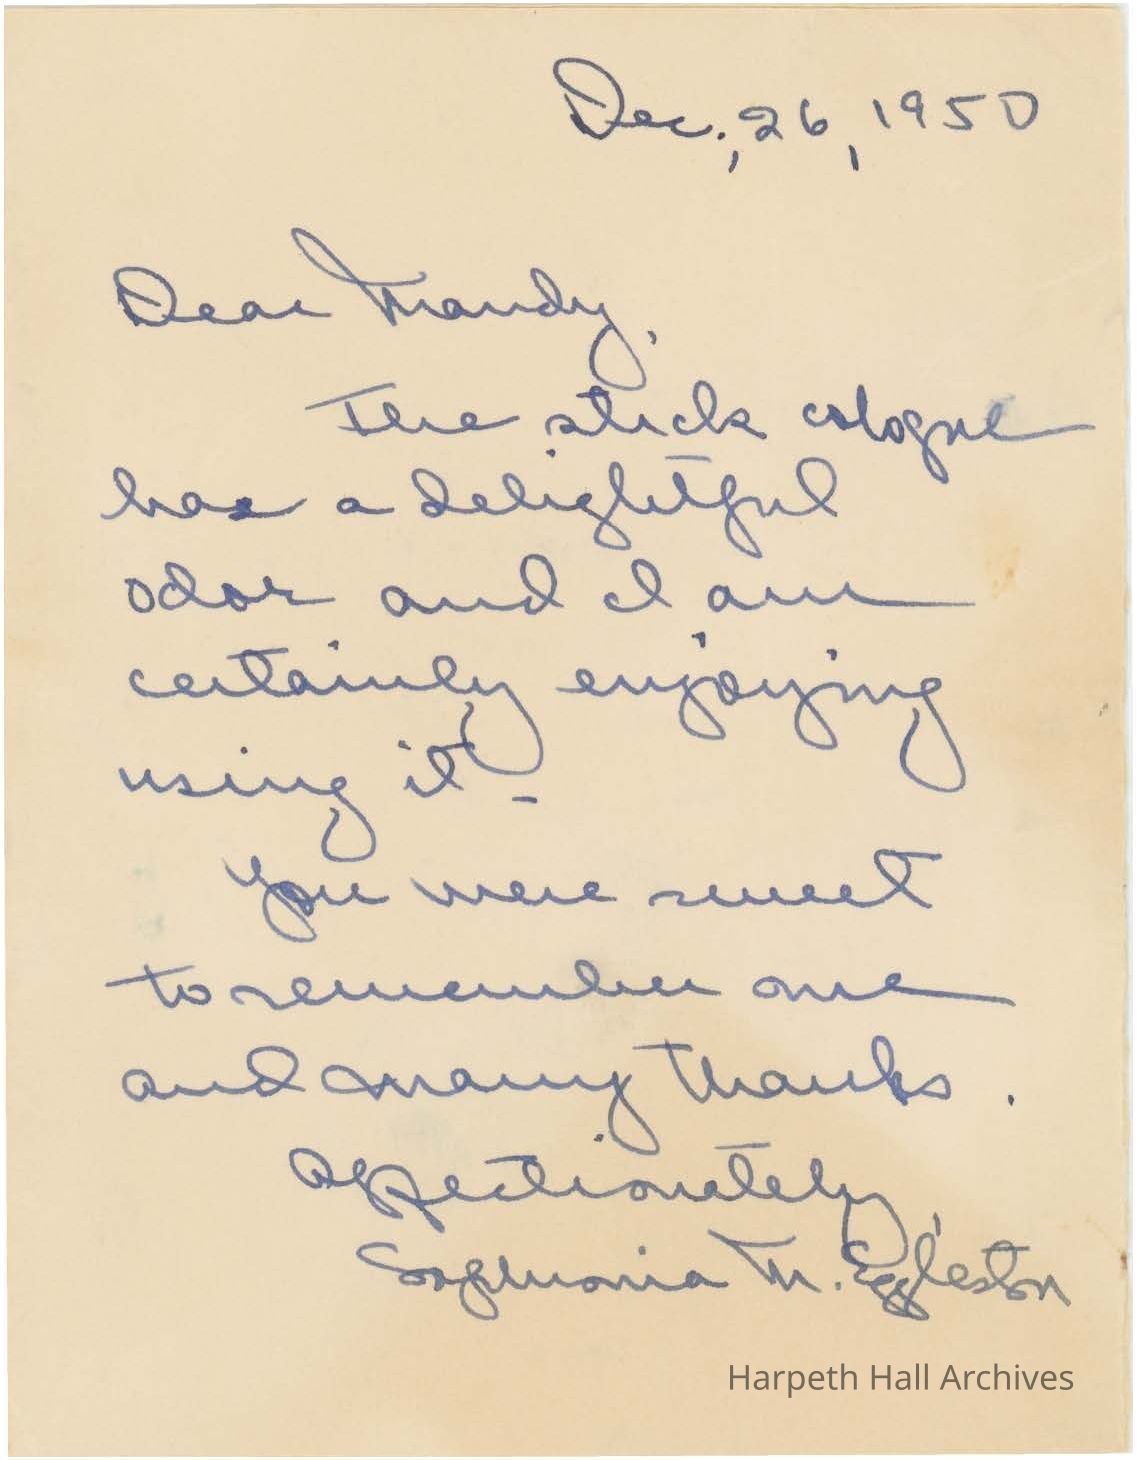 Dec., 26, 1950
Dear Mandy,
The stick cologne
has a delightful
odor and I am
certainly enjoying
using it -
You were sweet
to remember me
and many thanks.
Affectionately,
Sophronia M. Eggleston
Harpeth Hall Archives